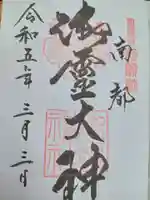 南都
御霊大神
令和五年三月三日